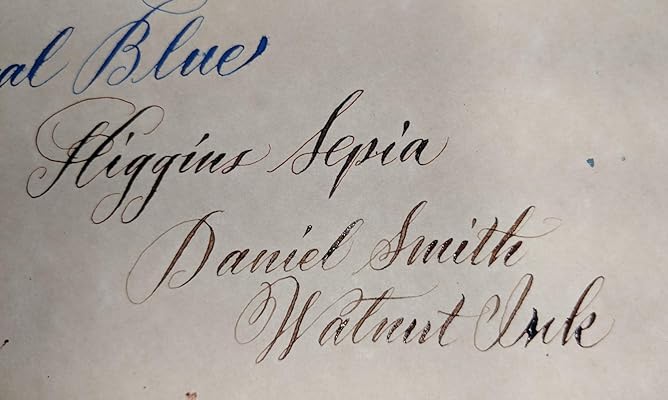 al Blue
Higgins Sepia
Daniel Smith
Walnut Ink